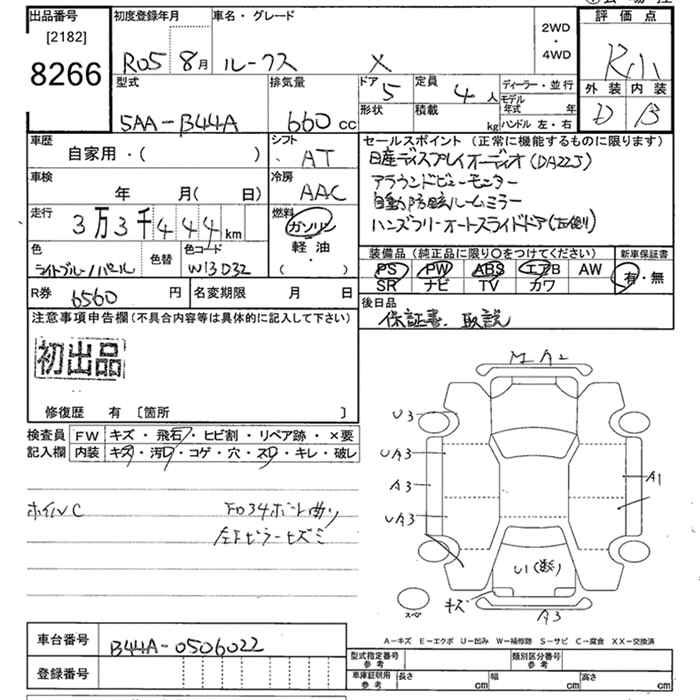 出品番号
[2182]
8266
初度登録年月
R05 8月
車名・グレード
ルークス X
2WD
・
4WD
評価点
R小
外装 内装
D B
型式
5AA-B44A
排気量
660 cc
ドア 5
定員 4 人
形状
積載 kg
ディーラー・並行
モデル年式 年
ハンドル 左・右
車歴
自家用・( )
シフト
AT
車検
年 月( 日)
冷房
AAC
走行
3万3千444 km
燃料
ガソリン
軽油
・
( )
色
ライトブルー/パール
色替
色コード
W13032
R券 6560 円
名変期限 月 日
セールスポイント (正常に機能するものに限ります)
日産ディスプレイオーディオ(DA22J)
アラウンドビューモニター
自動防眩ルームミラー
ハンズフリーオートスライドドア(左側)
装備品 (純正品に限り〇をつけてください)
新車保証書
PS PW ABS エアB AW
SR ナビ TV カワ
有・無
後日品
保証書、取説
注意事項申告欄(不具合内容等は具体的に記入して下さい)
初出品
修復歴 有 [箇所 ]
検査員
記入欄
FW キズ・飛石・ヒビ割・リペア跡・×要
内装 キズ・汚レ・コゲ・穴・スレ・キレ・破レ
ホイルC
左ピラーヒズミ
A2
U3
UA3
A3
UA3
A1
U1
キズ
A3
スペ
A-キズ E-エクボ U-凹み W-補修跡 S-サビ C-腐食 XX-交換済
車台番号 B44A-0506022
登録番号
型式指定番号
参考
類別区分番号
参考
車庫証明用
参考
長さ cm
幅 cm
高さ cm